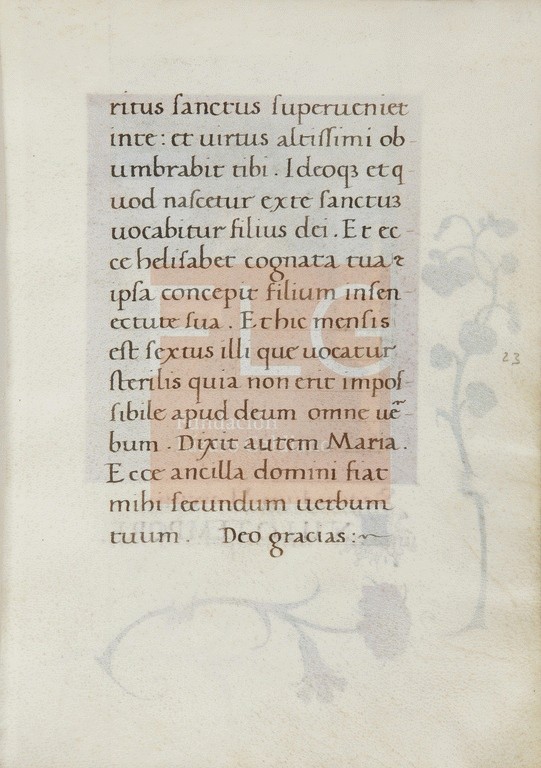 ritus ſanctus ſuperueniet
inte : et uirtus altiſſimi ob-
umbrabit tibi . Ideoqꝫ et q-
uod naſcetur exte ſanctuꝫ
uocabitur filius dei . Et ec-
ce heliſabet cognata tua ⁊
ipſa concepit filium inſen-
ectute ſua . Et hic menſis
eſt ſextus illi que uocatur
ſterilis quia non erit impoſ-
ſibile apud deum omne uē-
bum . Dixit autem Maria .
Ecce ancilla domini fiat
mihi ſecundum uerbum
tuum . Deo gracias :~
23
FLG
fundación